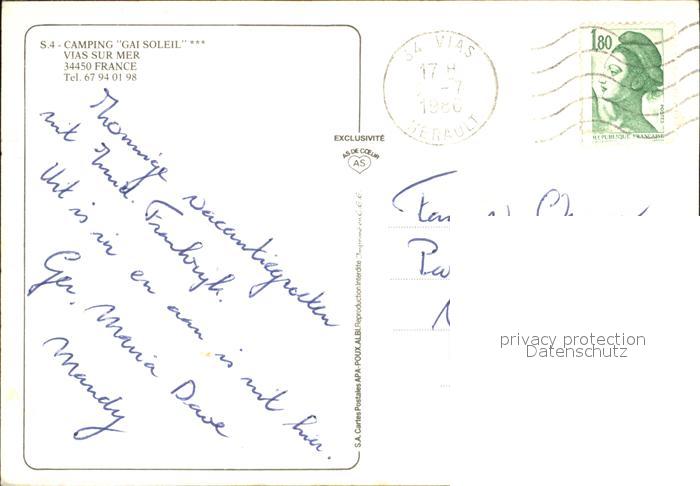 S.4 - CAMPING "GAI SOLEIL" ***
VIAS SUR MER
34450 FRANCE
Tel. 67 94 01 98
Zonnige vacantiegroeten
uit Zuid. Frankrijk.
Uit is in en aan is uit hier.
Ger. Maria Dave
Mandy
EXCLUSIVITÉ
AS DE CŒUR
AS
S.A. Cartes Postales APA-POUX, ALBI Reproduction Interdite
34 VIAS
17 H
-7
1986
HERAULT
1,80
POSTES
REPUBLIQUE FRANÇAISE
Fam
privacy protection
Datenschutz